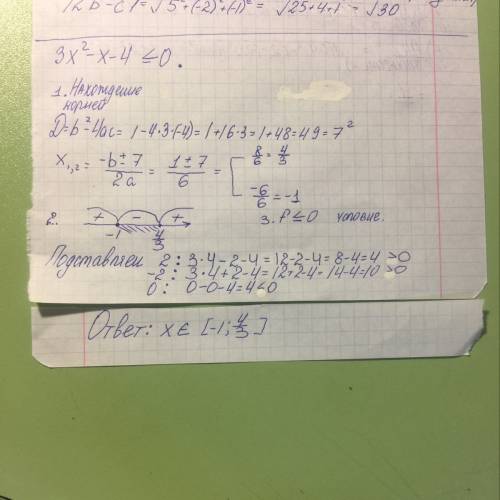 |2b-c|=√5²+(-2)²+(-1)² = √25+4+1 = √30
3x²-x-4 ≤0.
1. Нахождение
корней
D=b²-4ac= 1-4·3·(-4)=1+16·3=1+48=49=7²
x₁,₂= -b±7/2a = 1±7/6 = [ 8/6 = 4/3
-6/6 = -1
2. + - +
-1 4/3
3. f ≤0 условие.
Подставляем 2: 3·4-2-4=12-2-4=8-4=4 >0
-2: 3·4+2-4=12+2-4=14-4=10 >0
0: 0-0-4=4<0
Ответ: x∈ [-1; 4/3]